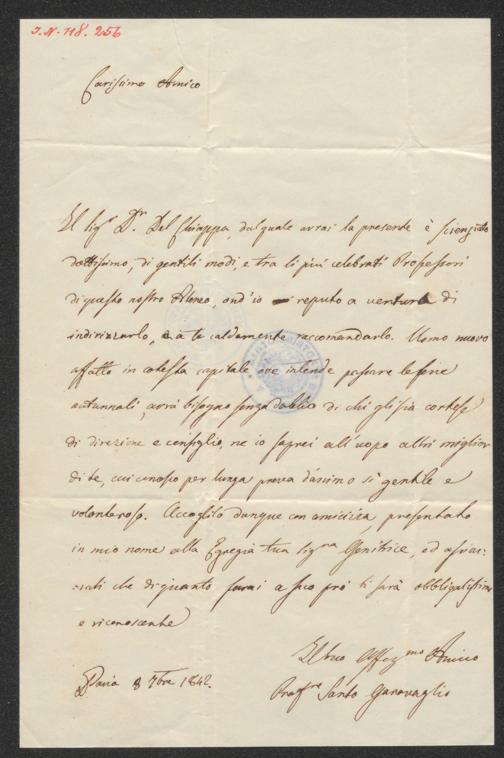 I.N. 118.256
Carissimo Amico
Il Sigr Dr. Del Chiappa, dal quale avrai la presente è scienziato
dottissimo, di gentili modi, e tra li più celebrati Professori
di questo nostro Ateneo, ond'io reputo a ventura di
indirizzarlo, e a te caldamente raccomandarlo. Uomo nuovo
affatto in cotesta capitale ove intende passare le ferie
autunnali, avrà bisogno senza dubbio di chi gli sia cortese
di direzione e consiglio, ne io saprei all'uopo altri miglior
di te, cui conosco per lunga prova d'animo sì gentile e
volonteroso. Accoglilo dunque con amicizia, presentalo
in mio nome alla Egregia tua Sigra Genitrice, ed assicu-
rati che di quanto farai a suo prò ti sarà obbligatissimo
e riconoscente
Il tuo Affezmo Amico
Profre Santo Garovaglio
Pavia 8 7bre 1842.